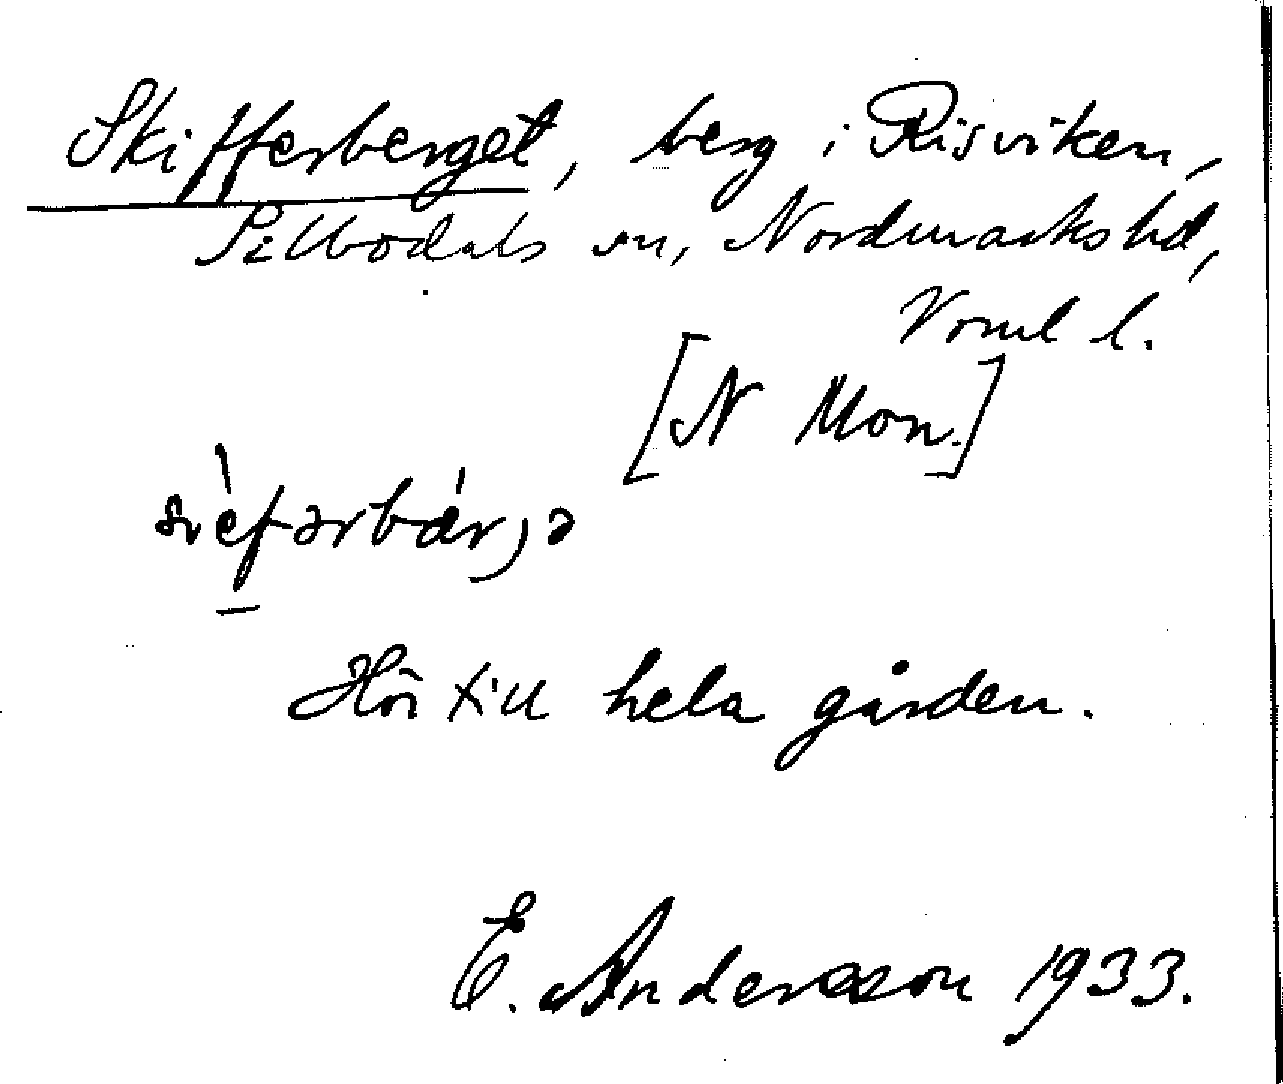 Skifferberget, berg i Risviken,
Sillbodals sn, Nordmarks hd,
Vrml l.
[N Mon.]
Hör till hela gården.
E. Andersson 1933.